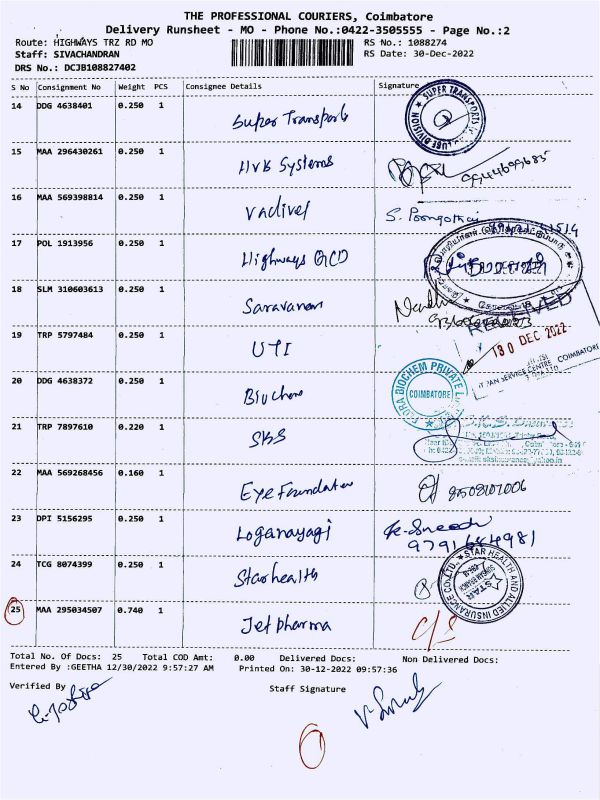 THE PROFESSIONAL COURIERS, Coimbatore
Delivery Runsheet - MO - Phone No.:0422-3505555 - Page No.:2
Route: HIGHWAYS TRZ RD MO RS No.: 1088274
Staff: SIVACHANDRAN RS Date: 30-Dec-2022
DRS No.: DCJB108827402
S No Consignment No Weight PCS Consignee Details Signature
14 DDG 4638401 0.250 1 Super Transports
SUPER TRANSPORTS
15 MAA 296430261 0.250 1 HVB Systems 09944699685
16 MAA 569398814 0.250 1 Vadivel S. Poongothai
17 POL 1913956 0.250 1 Highways QCD
18 SLM 310603613 0.250 1 Saravanan
RECEIVED
19 TRP 5797484 0.250 1 UTI
30 DEC 2022
PAN SERVICE CENTRE COIMBATORE
20 DDG 4638372 0.250 1 Biochem
FLORA BIOCHEM PRIVATE
COIMBATORE
21 TRP 7897610 0.220 1 SBS
22 MAA 569268456 0.160 1 Eye Foundation
23 DPI 5156295 0.250 1 Loganayagi
9791684981
24 TCG 8074399 0.250 1 Starhealth
STAR HEALTH AND ALLIED INSURANCE CO.LTD.
STAR
25 MAA 295034507 0.740 1 Jetpharma C/S
Total No. Of Docs: 25 Total COD Amt: 0.00 Delivered Docs: Non Delivered Docs:
Entered By :GEETHA 12/30/2022 9:57:27 AM Printed On: 30-12-2022 09:57:36
Verified By Staff Signature